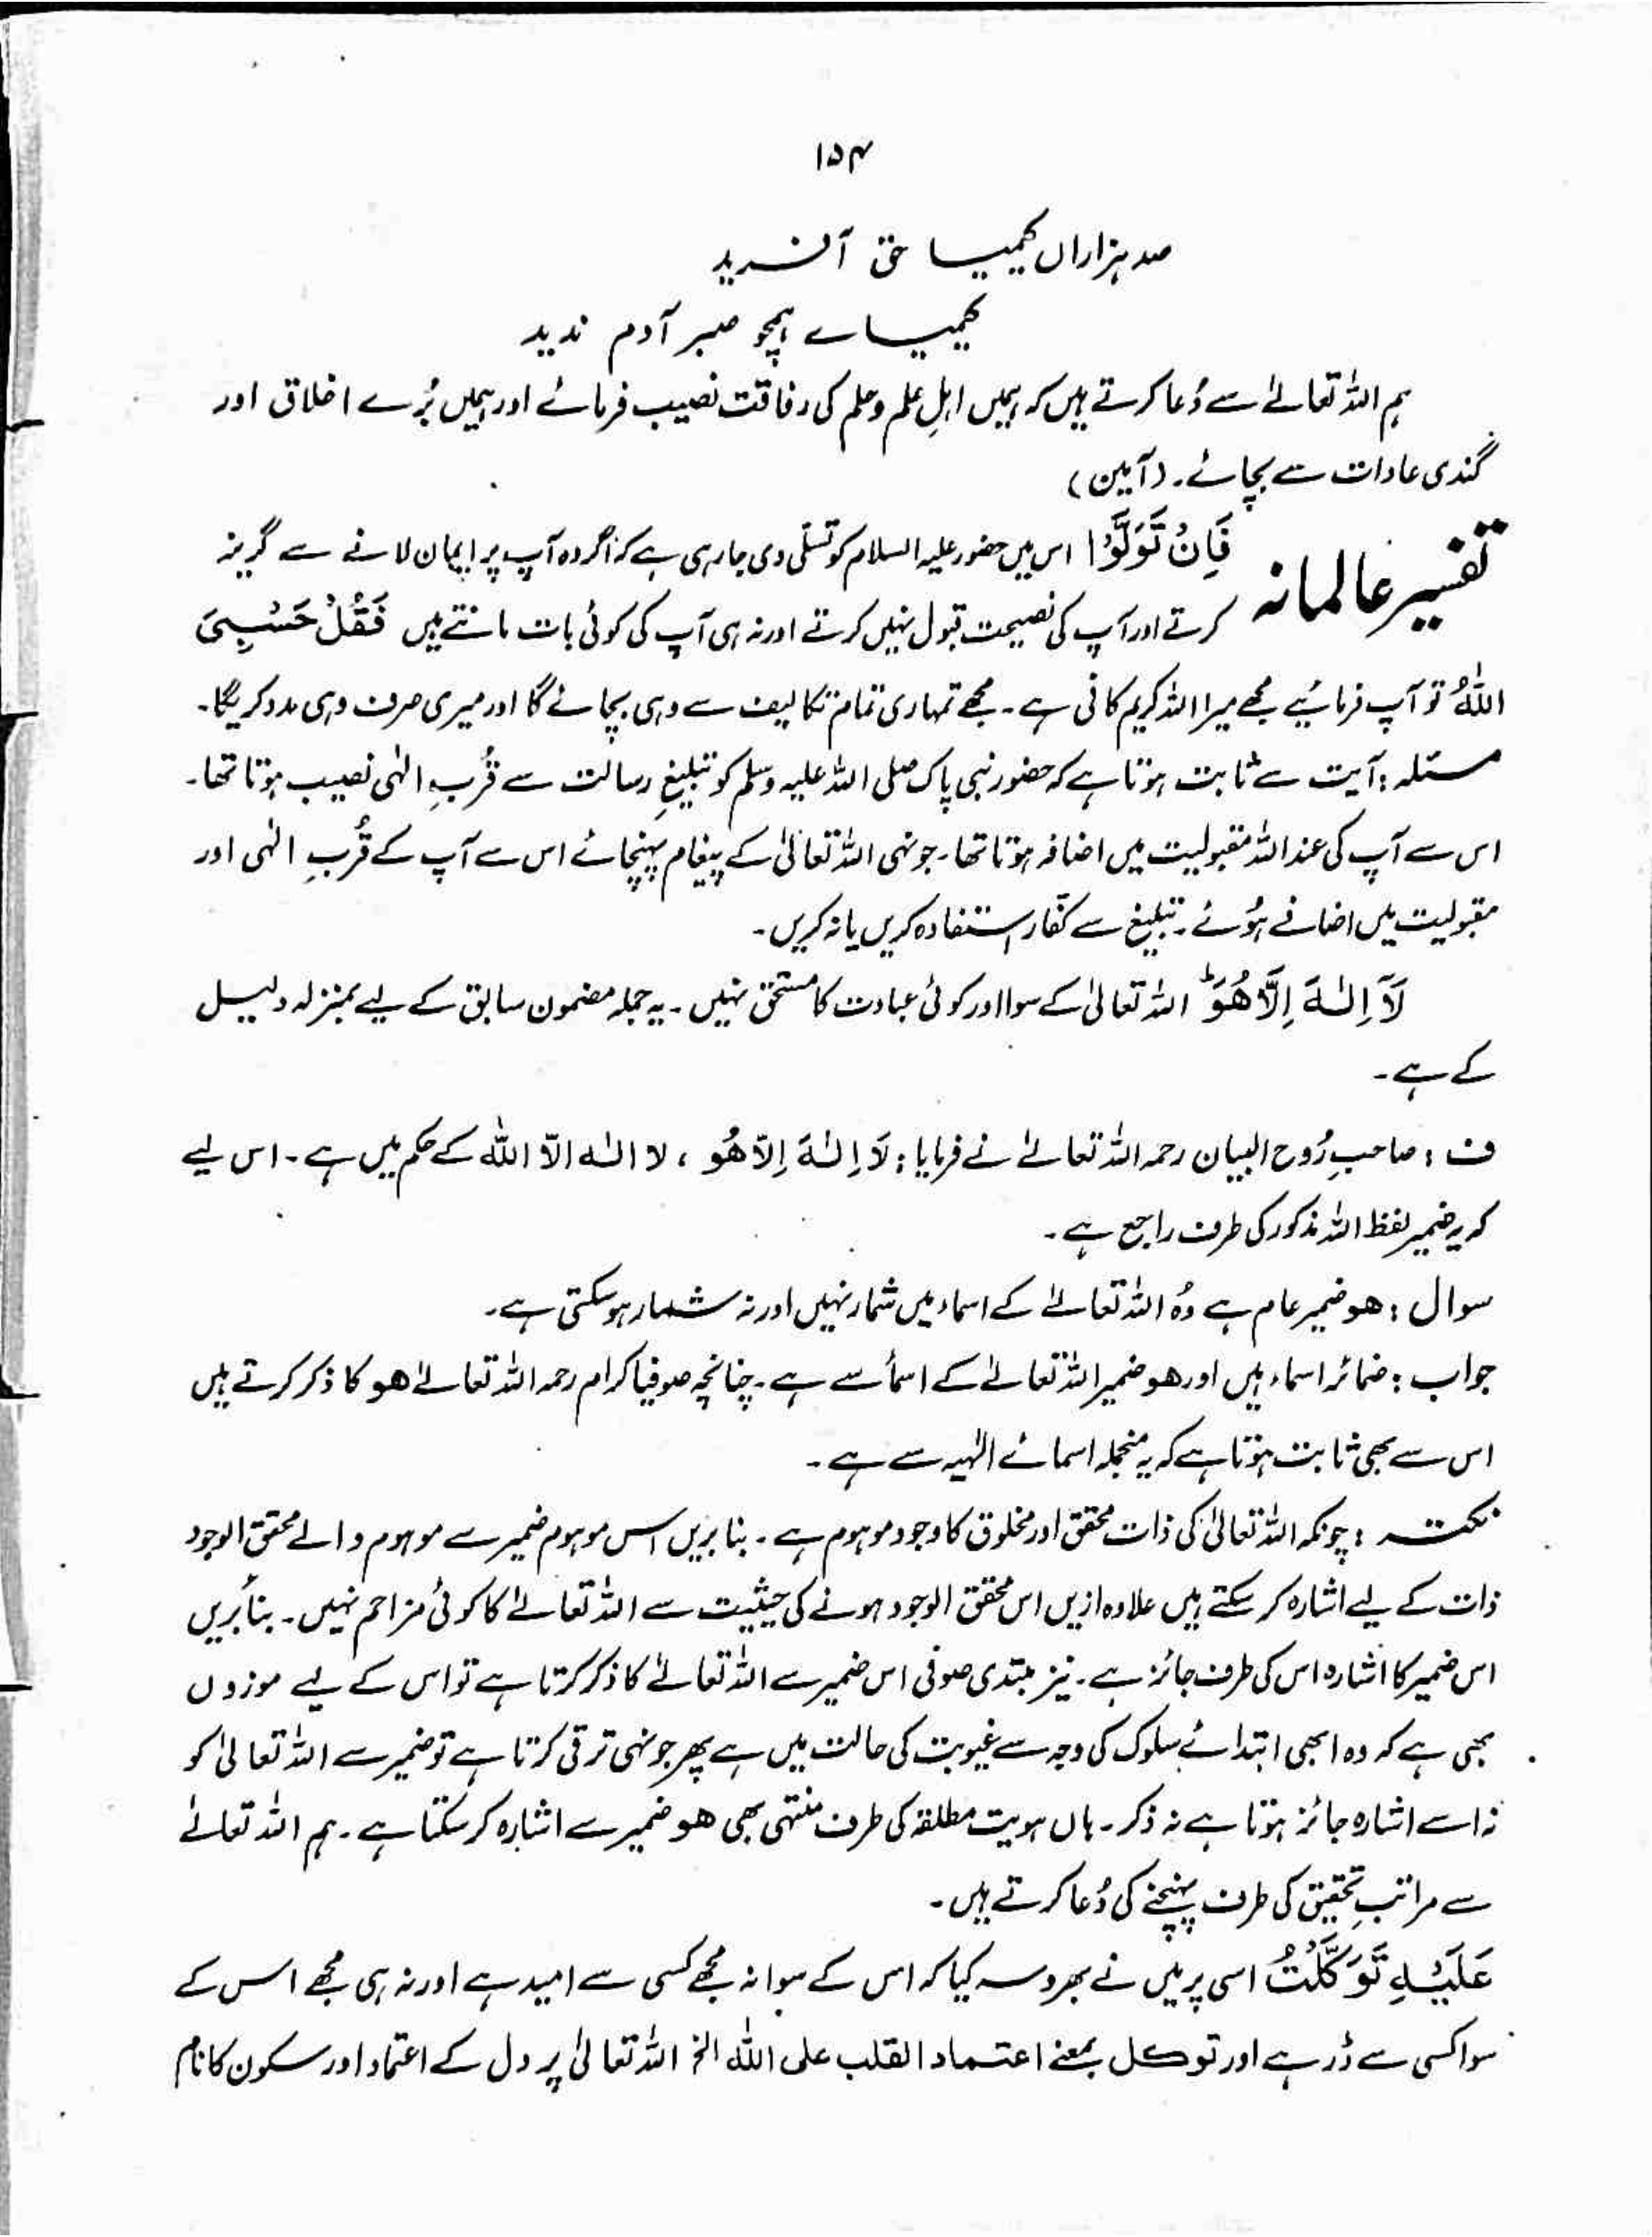 ۱۵۴
صد ہزاراں کیمیا حق آفرید
کیمیاے ہمچو صبر آدم ندید
ہم اللہ تعالےٰ سے دُعا کرتے ہیں کہ ہمیں اہلِ علم وحلم کی رفاقت نصیب فرمائے اور ہمیں بُرے اخلاق اور
گندی عادات سے بچائے۔ (آمین)
تفسیر عالمانہ فَاِنْ تَوَلَّوْا اس میں حضور علیہ السلام کو تسلّی دی جا رہی ہے کہ اگر وہ آپ پر ایمان لانے سے گریز
کرتے اور آپ کی نصیحت قبول نہیں کرتے اور نہ ہی آپ کی کوئی بات مانتے ہیں فَقُلْ حَسْبِیَ
اللّٰہُ تو آپ فرمائیے مجھے میرا اللہ کریم کافی ہے۔ مجھے تمہاری تمام تکالیف سے وہی بچائے گا اور میری صرف وہی مدد کریگا۔
مسئلہ : آیت سے ثابت ہوتا ہے کہ حضور نبی پاک صلی اللہ علیہ وسلم کو تبلیغِ رسالت سے قُربِ الٰہی نصیب ہوتا تھا۔
اس سے آپ کی عند اللہ مقبولیت میں اضافہ ہوتا تھا۔ جونہی اللہ تعالیٰ کے پیغام پہنچائے اس سے آپ کے قُربِ الٰہی اور
مقبولیت میں اضافے ہوُئے۔ تبلیغ سے کفّار استفادہ کریں یا نہ کریں۔
لَآ اِلٰہَ اِلَّا ھُوَ ؕ اللہ تعالیٰ کے سوا اور کوئی عبادت کا مستحق نہیں۔ یہ جملہ مضمون سابق کے لیے بمنزلہ دلیل
کے ہے۔
ف : صاحبِ رُوح البیان رحمہ اللہ تعالےٰ نے فرمایا : لَا اِلٰہَ اِلّا ھُو ، لا الٰہ الّا اللہ کے حکم میں ہے۔ اس لیے
کہ یہ ضمیر لفظ اللہ مذکور کی طرف راجع ہے۔
سوال : ھو ضمیر عام ہے وُہ اللہ تعالےٰ کے اسماء میں شمار نہیں اور نہ شمار ہوسکتی ہے۔
جواب : ضمائر اسماء ہیں اور ھو ضمیر اللہ تعالےٰ کے اسمأ سے ہے۔ چنانچہ صوفیا کرام رحمہ اللہ تعالےٰ ھو کا ذکر کرتے ہیں
اس سے بھی ثابت ہوتا ہے کہ یہ منجملہ اسمائے الٰہیہ سے ہے۔
نکتہ : چونکہ اللہ تعالیٰ کی ذات محقق اور مخلوق کا وجود موہوم ہے۔ بنا بریں اس موہوم ضمیر سے موہوم والے محقق الوجود
ذات کے لیے اشارہ کر سکتے ہیں علاوہ ازیں اس محقق الوجود ہونے کی حیثیت سے اللہ تعالےٰ کا کوئی مزاحم نہیں۔ بنأبریں
اس ضمیر کا اشارہ اس کی طرف جائز ہے۔ نیز مبتدی صوفی اس ضمیر سے اللہ تعالےٰ کا ذکر کرتا ہے تو اس کے لیے موزوں
بھی ہے کہ وہ ابھی ابتدائے سلوک کی وجہ سے غیوبت کی حالت میں ہے پھر جونہی ترقی کرتا ہے تو ضمیر سے اللہ تعالیٰ کو
نہ اسے اشارہ جائز ہوتا ہے نہ ذکر۔ ہاں ہویت مطلقہ کی طرف منتہی بھی ھو ضمیر سے اشارہ کر سکتا ہے۔ ہم اللہ تعالےٰ
سے مراتبِ تحقیق کی طرف پہنچنے کی دُعا کرتے ہیں۔
عَلَیْہِ تَوَکَّلْتُ اسی پر میں نے بھروسہ کیا کہ اس کے سوا نہ مجھے کسی سے امید ہے اور نہ ہی مجھے اس کے
سوا کسی سے ڈر ہے اور توکل بمعنے اعتماد القلب علی اللہ الخ اللہ تعالیٰ پر دل کے اعتماد اور سکون کا نام